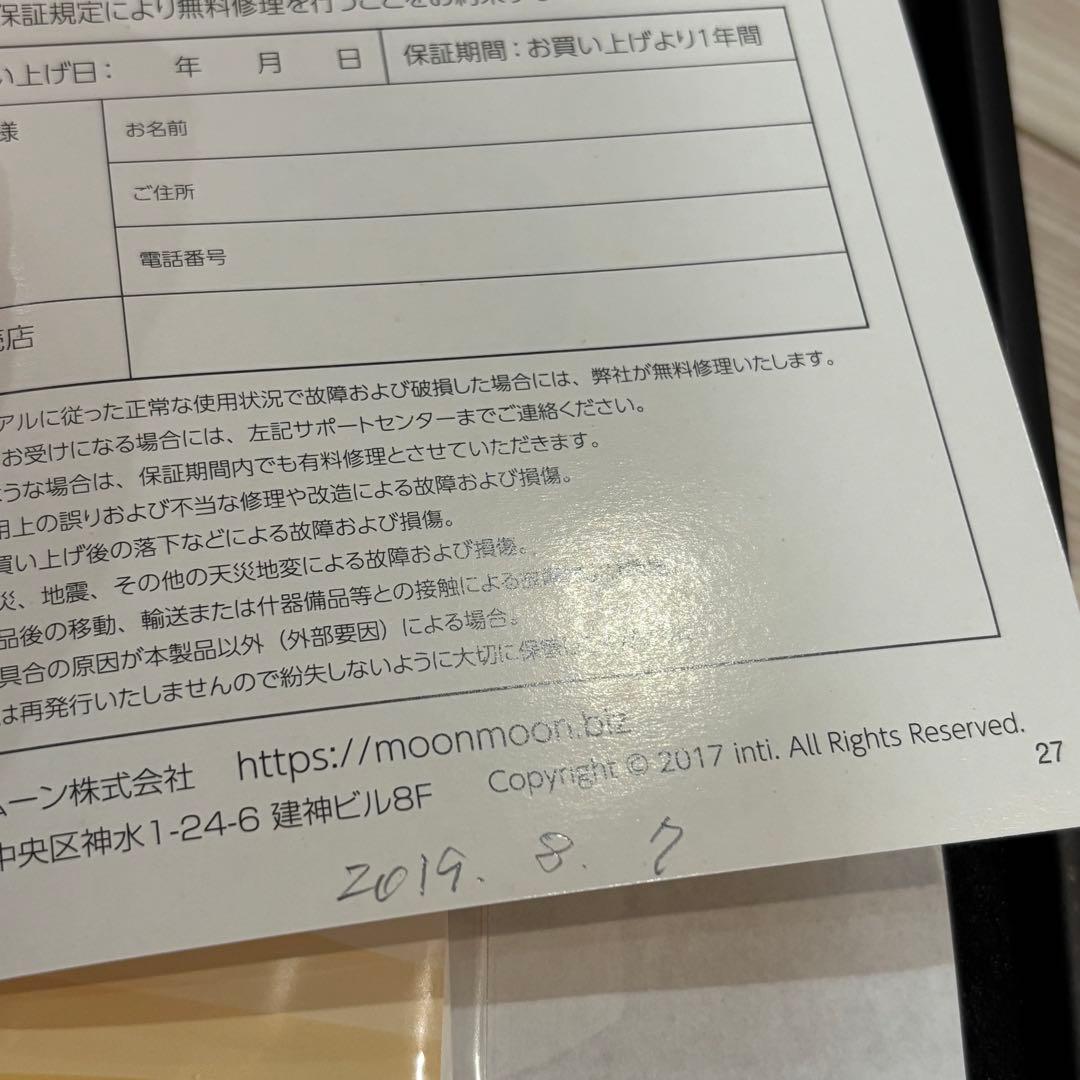 保証規定により無料修理を行うことをお約束する
い上げ日： 年 月 日 保証期間：お買い上げより1年間
様
お名前
ご住所
電話番号
店
アルに従った正常な使用状況で故障および破損した場合には、弊社が無料修理いたします。
お受けになる場合には、左記サポートセンターまでご連絡ください。
うな場合は、保証期間内でも有料修理とさせていただきます。
用上の誤りおよび不当な修理や改造による故障および損傷。
買い上げ後の落下などによる故障および損傷。
災、地震、その他の天災地変による故障および損傷。
品後の移動、輸送または什器備品等との接触による
具合の原因が本製品以外（外部要因）による場合。
は再発行いたしませんので紛失しないように大切に保管
ムーン株式会社 https://moonmoon.biz
中央区神水1-24-6 建神ビル8F Copyright © 2017 inti. All Rights Reserved.
27
2019. 8. 7